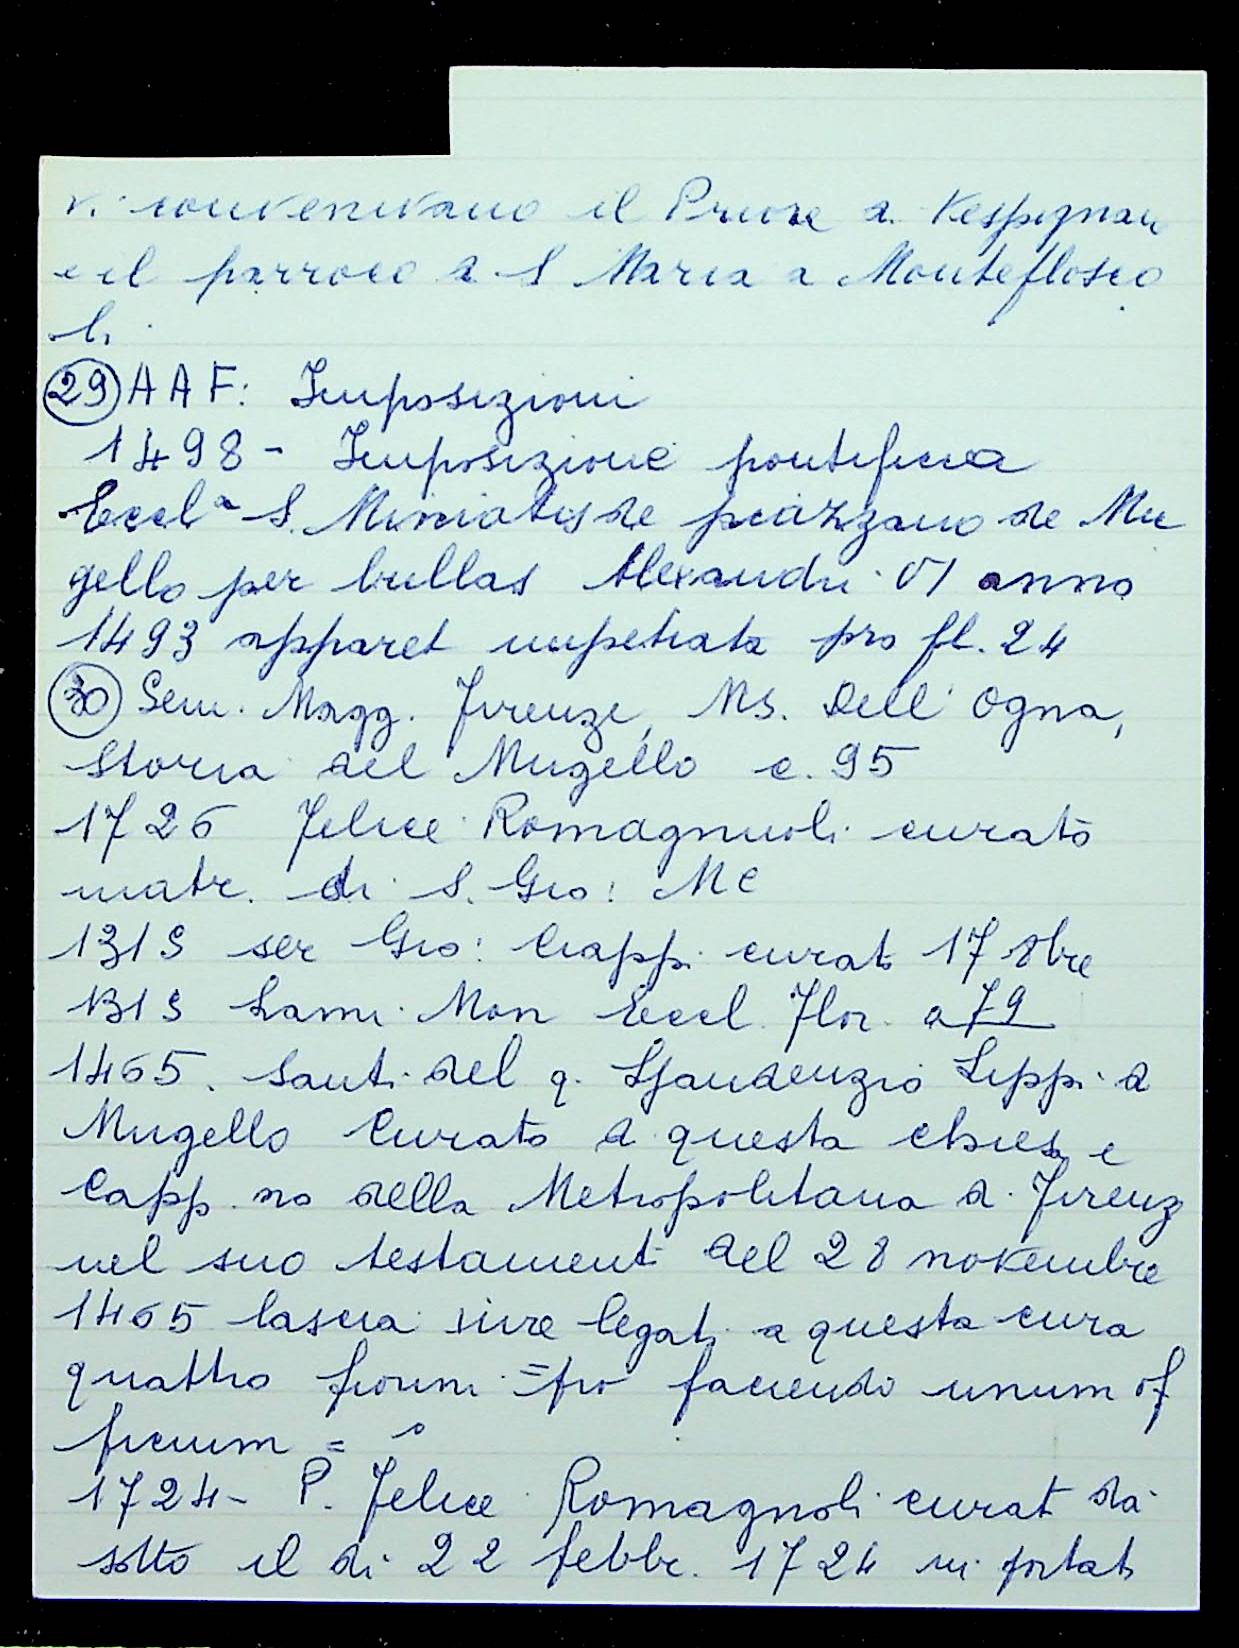 vi convenivano il Priore di Vespignan
e il parroco di S Maria a Montefiosco
li.
(29) AAF: Imposizioni
1498 - Imposizione pontificia
Eccla S. Miniatis de piazzano de Mu
gello per bullas Alexandri VI anno
1493 apparet impetrata pro fl. 24
(30) Sem. Magg. Firenze, Ms. Dell'Ogna,
Storia del Mugello c. 95
1726 Felice Romagnuoli curato
matr. di S. Gio: M C
131S ser Gio: Ciappi curato 17 8bre
131S Lami Mon Eccl. Flor. a 79
1465. Santi del q. Gaudenzio Lippi di
Mugello Curato di questa chiesa e
Capp.no della Metropolitana di Firenz
nel suo testament del 28 novembre
1465 lascia iure legati a questa cura
quattro fiorini = pro faciendo unum of
ficium =
1724 - P. Felice Romagnoli curat da
sotto il di 22 febbr. 1724 vi portat